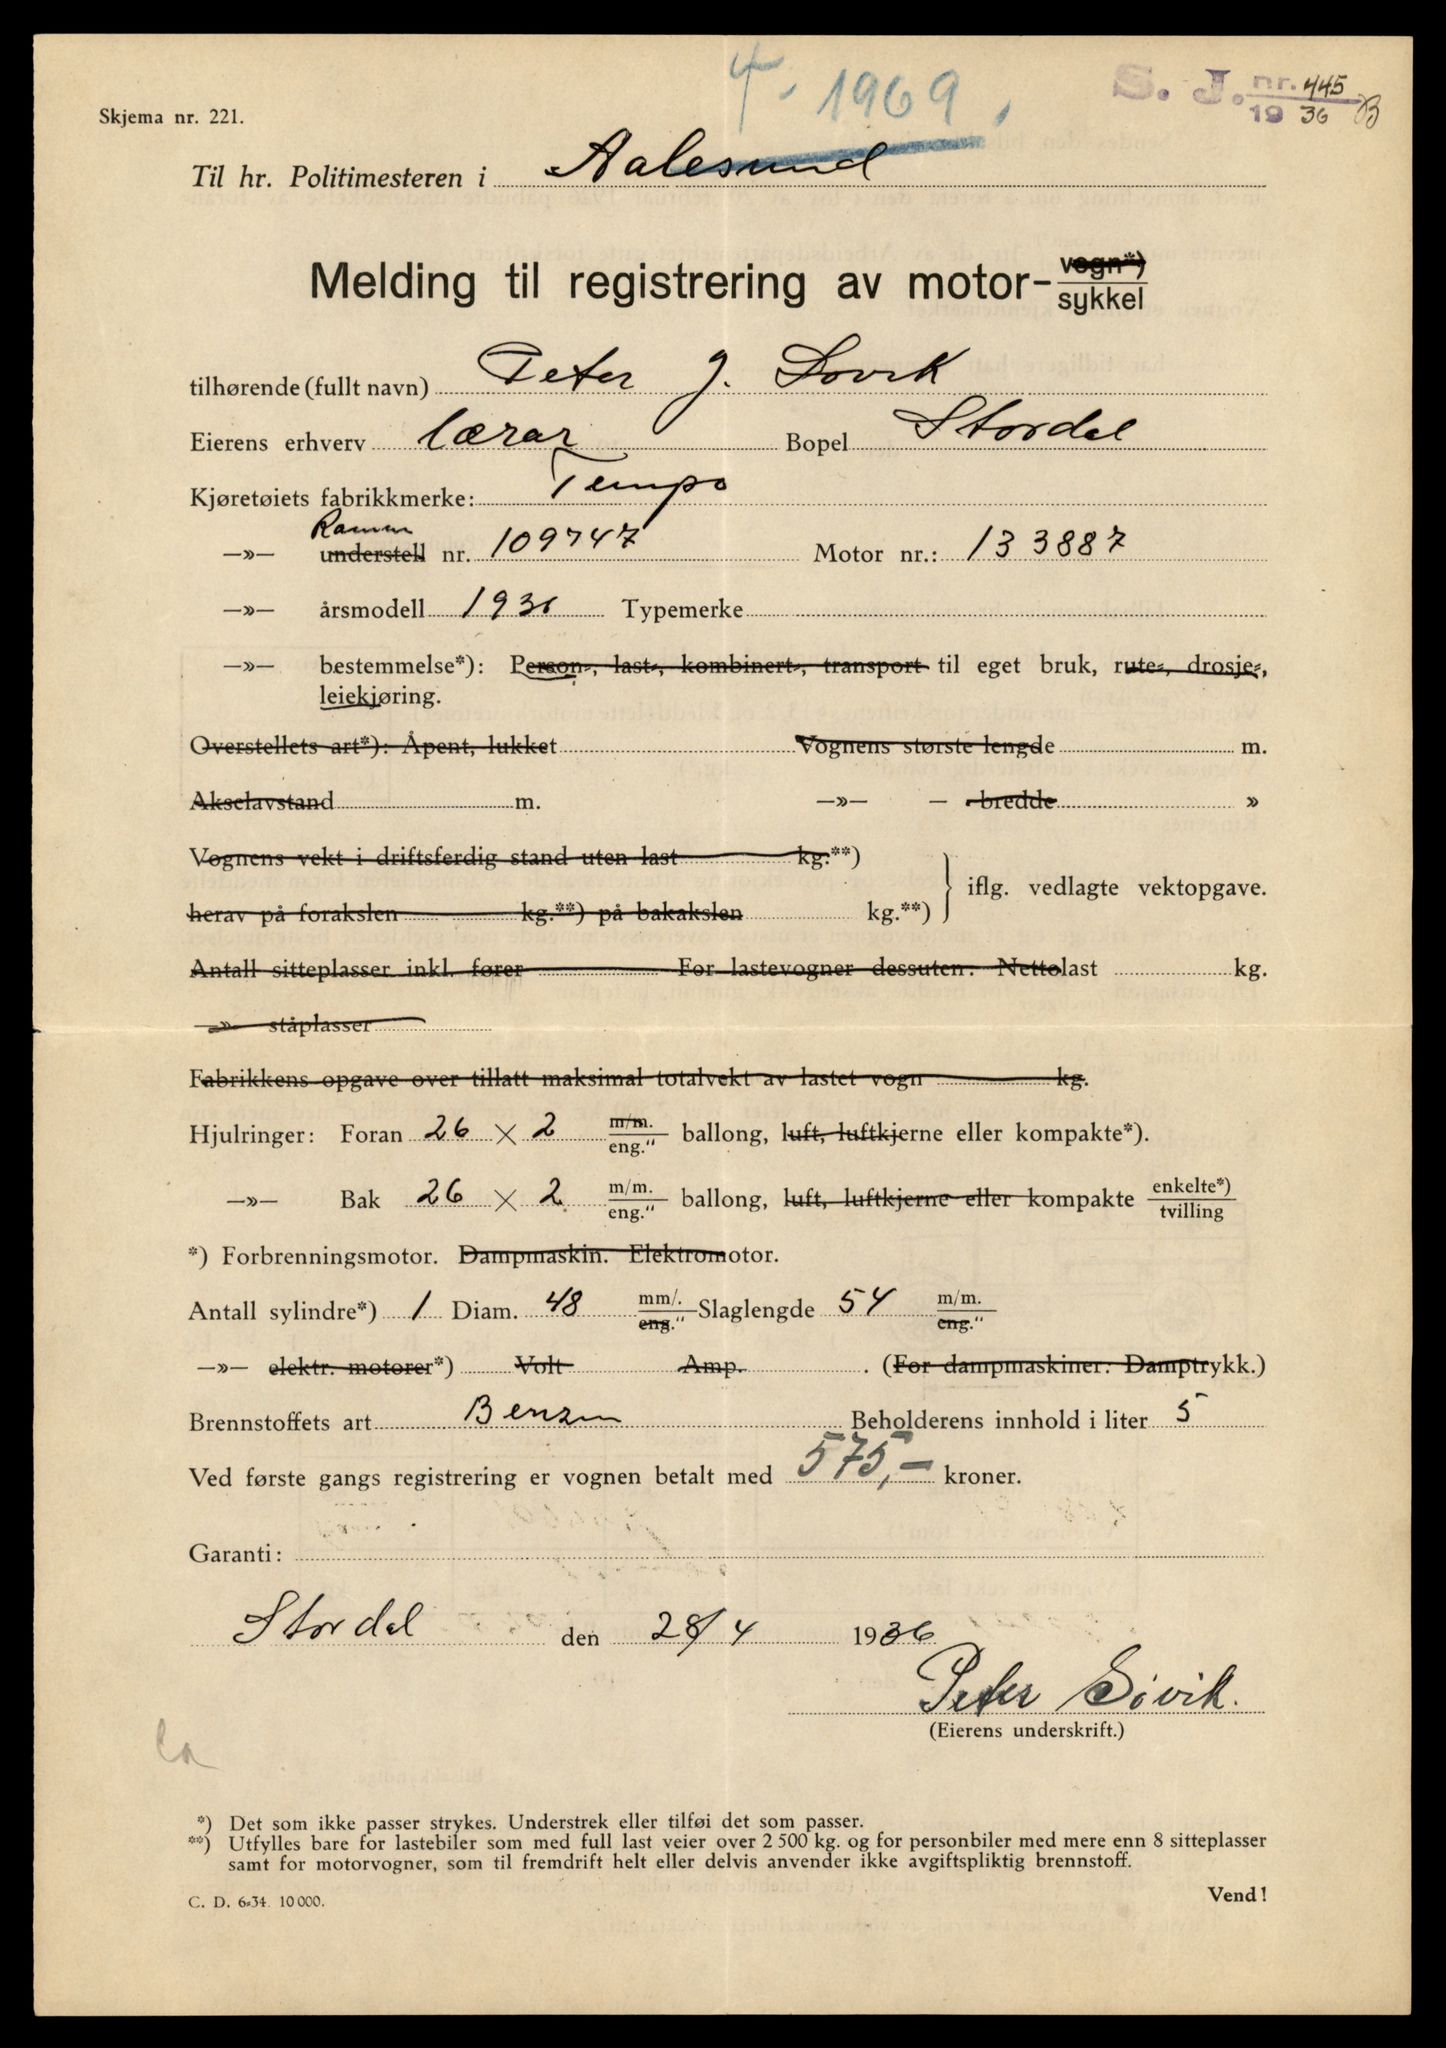 T. 1969.
S. J. nr. 445
1936 B
Skjema nr. 221.
Til hr. Politimesteren i Aalesund
Melding til registrering av motor- vogn*)
sykkel
tilhørende (fullt navn) Peter J. Søvik
Eierens erhverv lærar Bopel Stordal
Kjøretøiets fabrikkmerke: Tempo
Ramm
—»— understell nr. 109747 Motor nr.: 133887
—»— årsmodell 1936 Typemerke
—»— bestemmelse*): Person-, last-, kombinert-, transport til eget bruk, rute-, drosje-,
leiekjøring.
Overstellets art*): Åpent, lukket Vognens største lengde m.
Akselavstand m. —»— — bredde »
Vognens vekt i driftsferdig stand uten last kg.**)
iflg. vedlagte vektopgave.
herav på forakslen kg.**) på bakakslen kg.**)
Antall sitteplasser inkl. fører For lastevogner dessuten: Nettolast kg.
—»— ståplasser
Fabrikkens opgave over tillatt maksimal totalvekt av lastet vogn kg.
Hjulringer: Foran 26 × 2 m/m. eng." ballong, luft, luftkjerne eller kompakte*).
—»— Bak 26 × 2 m/m. eng." ballong, luft, luftkjerne eller kompakte enkelte*) tvilling
*) Forbrenningsmotor. Dampmaskin. Elektromotor.
Antall sylindre*) 1 Diam. 48 mm/. eng." Slaglengde 54 m/m. eng."
—»— elektr. motorer*) Volt Amp. . (For dampmaskiner: Damptrykk.)
Brennstoffets art Benzin Beholderens innhold i liter 5
Ved første gangs registrering er vognen betalt med 575,- kroner.
Garanti:
Stordal den 28/4 1936
Peter Søvik.
(Eierens underskrift.)
*) Det som ikke passer strykes. Understrek eller tilføi det som passer.
**) Utfylles bare for lastebiler som med full last veier over 2 500 kg. og for personbiler med mere enn 8 sitteplasser
samt for motorvogner, som til fremdrift helt eller delvis anvender ikke avgiftspliktig brennstoff.
C. D. 6-34. 10 000.
Vend!